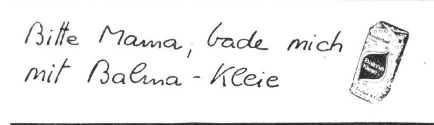 Bitte Mama, bade mich
mit Balma-Kleie